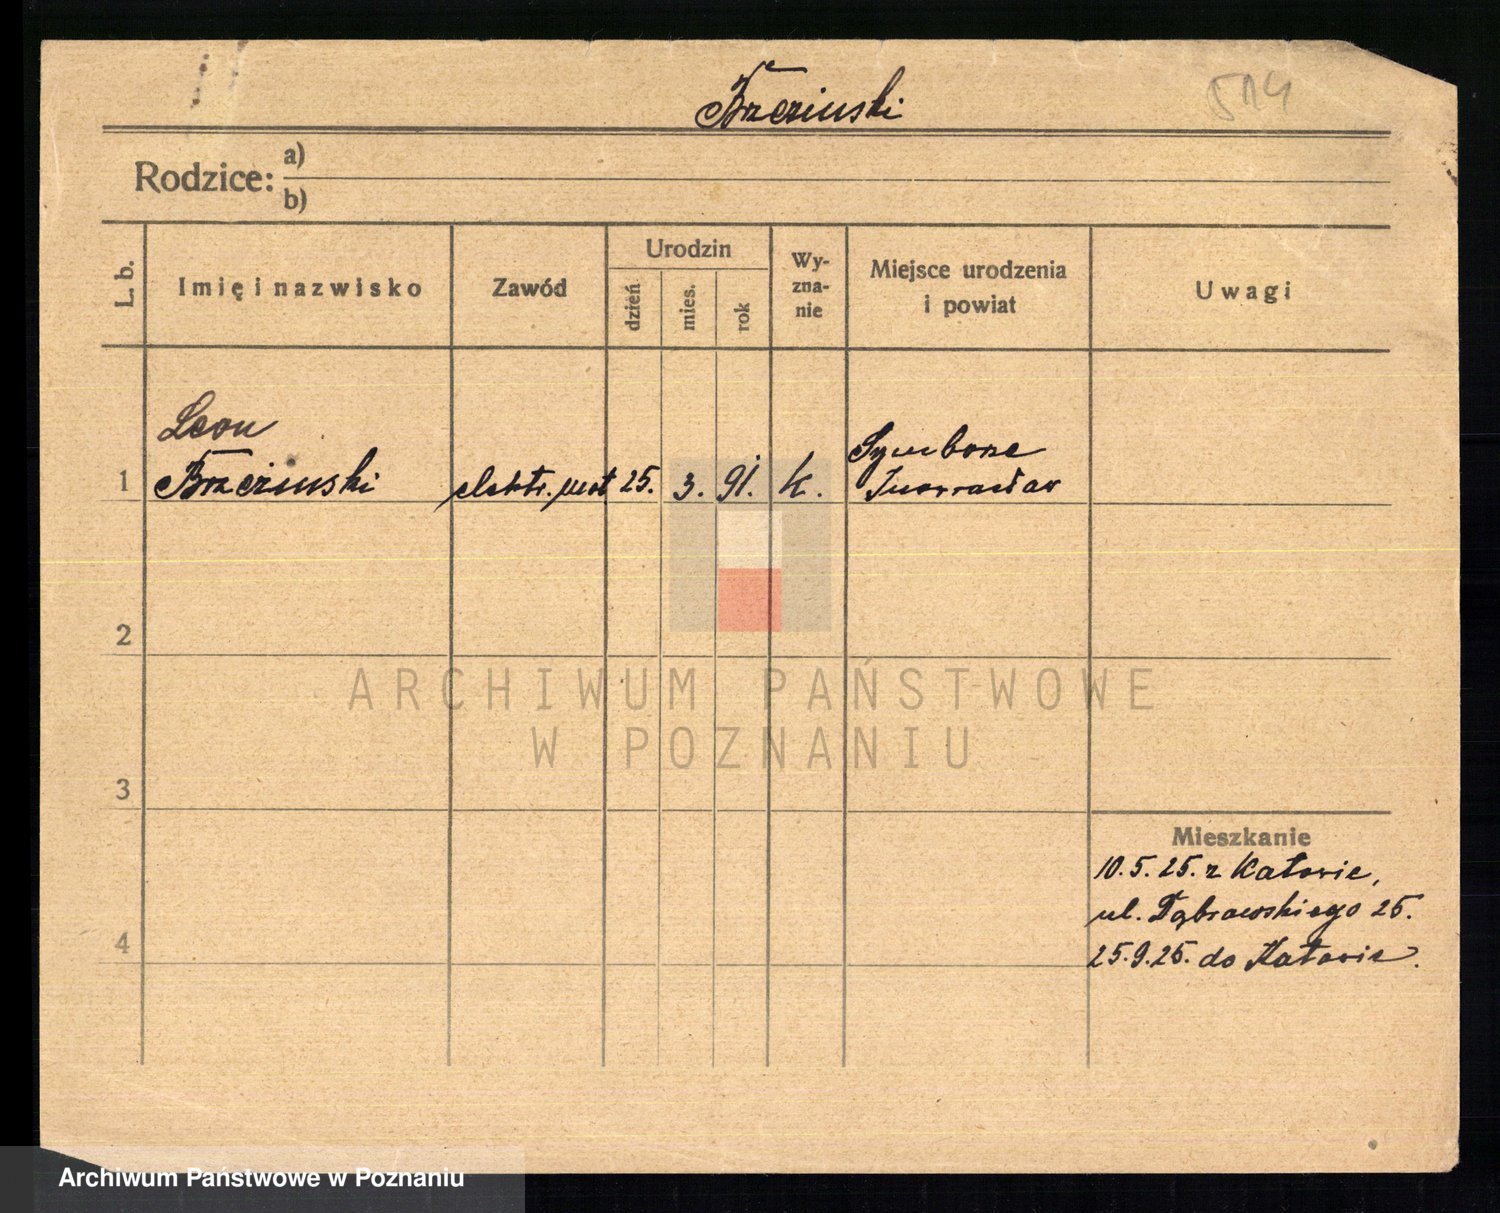 Brzezinski
514
Rodzice:
a)
b)
L. b.
Imię i nazwisko
Zawód
Urodzin
dzień
mies.
rok
Wy-
zna-
nie
Miejsce urodzenia
i powiat
Uwagi
Leon
Brzezinski
1
elektr. mot
25.
3.
91.
k.
Symborze
Inowrocław
2
ARCHIWUM PAŃSTWOWE
W POZNANIU
3
Mieszkanie
10.5.25. z Katowic,
ul. Dąbrowskiego 25.
4
25.9.25. do Katowic.
Archiwum Państwowe w Poznaniu